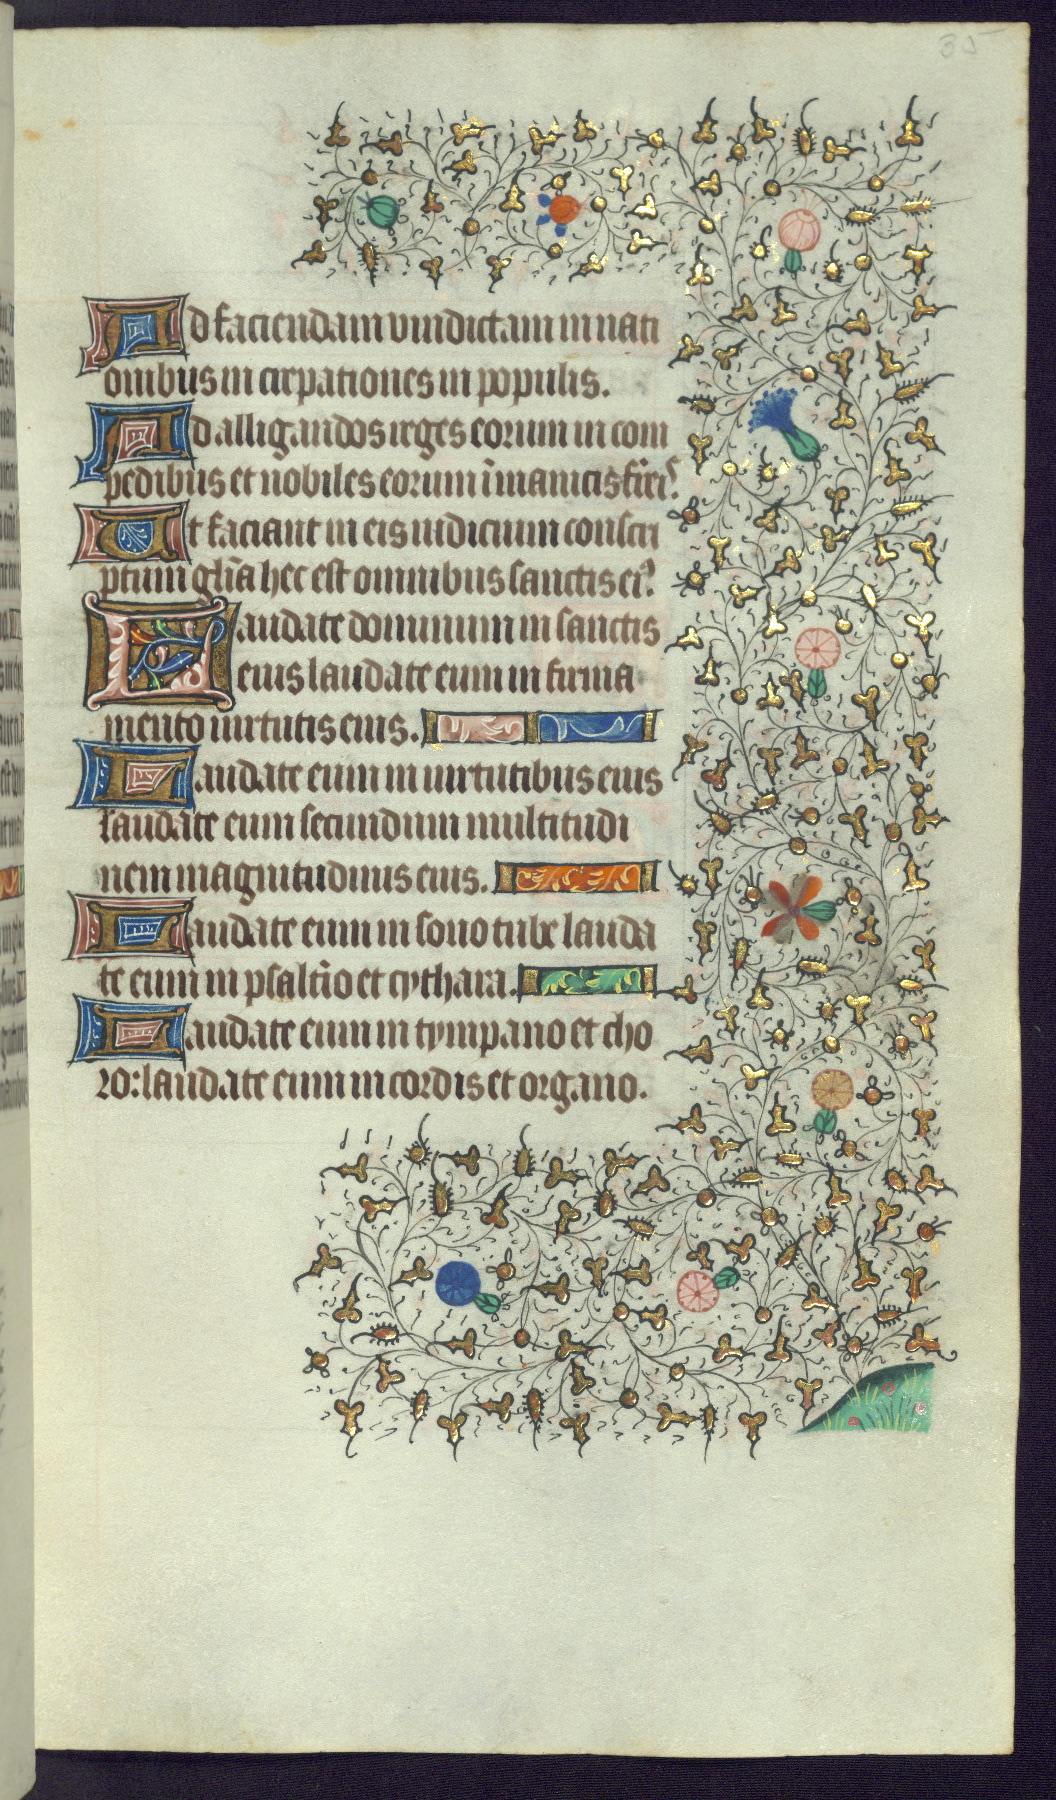 35
Ad faciendam vindictam in nati
onibus in crepationes in populis.
Ad alligandos reges eorum in com
pedibus et nobiles eorum ī manicis fērꝭ.
Ut faciant in eis iudicium conscri
ptum gl̄ia hec est omnibus sanctis eiꝰ.
Laudate dominum in sanctis
eius laudate eum in firma
mento virtutis eius.
Laudate eum in virtutibus eius
laudate eum secundum multitudi
nem magnitudinis eius.
Laudate eum in sono tube lauda
te eum in psaltīo et cythara.
Laudate eum in tympano et cho
ro: laudate eum in cordis et organo.